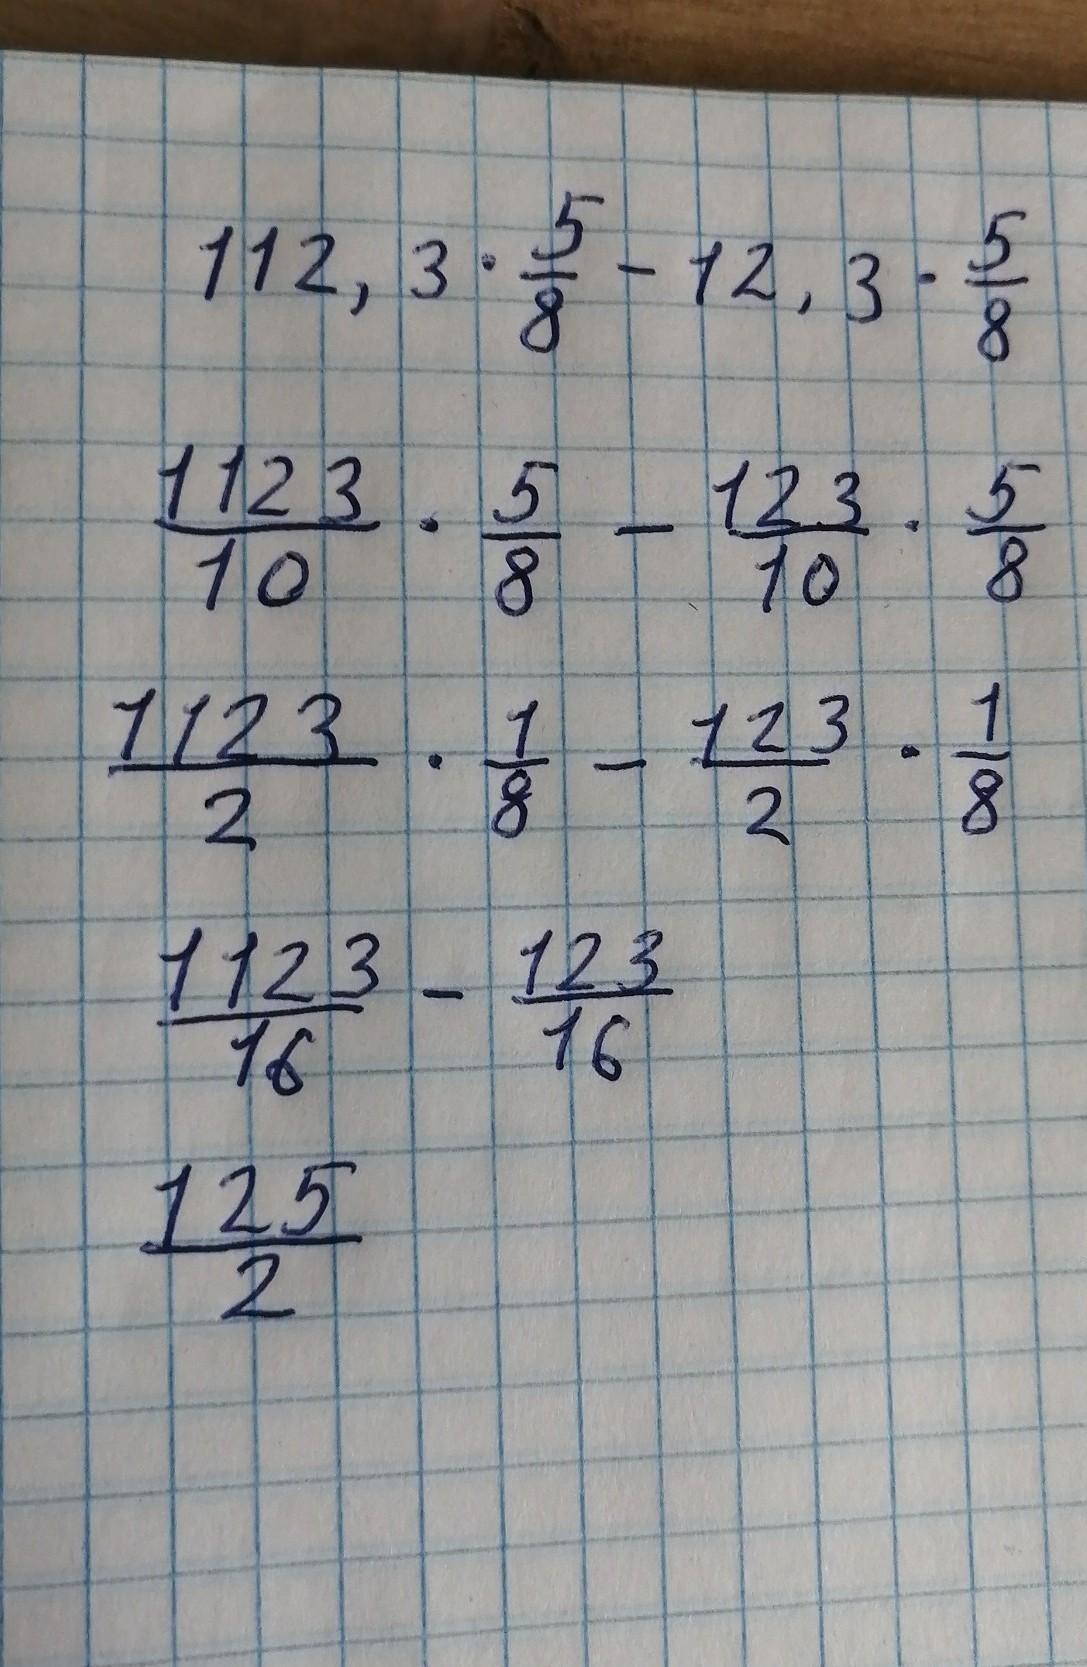 112,3 · 5/8 - 12,3 · 5/8
1123/10 · 5/8 - 123/10 · 5/8
1123/2 · 1/8 - 123/2 · 1/8
1123/16 - 123/16
125/2